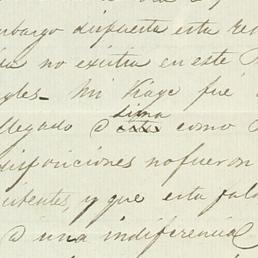 mbargo dispuesta esta Re
da no existia en este
gles_ Mi viage fué
llegado a Lima como
disposiciones no fueron
istentes, y que esta fal
a una indiferencia